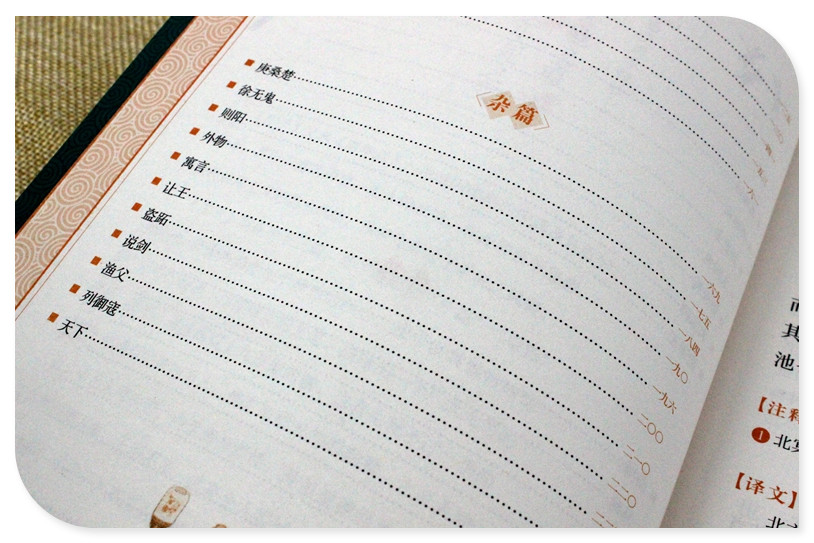 杂篇
庚桑楚 一六九
徐无鬼 一七五
则阳 一八四
外物 一九〇
寓言 一九六
让王 二〇〇
盗跖 二一〇
说剑 二二〇
渔父
列御寇
天下
其
池
【注释
❶北冥
【译文】
北